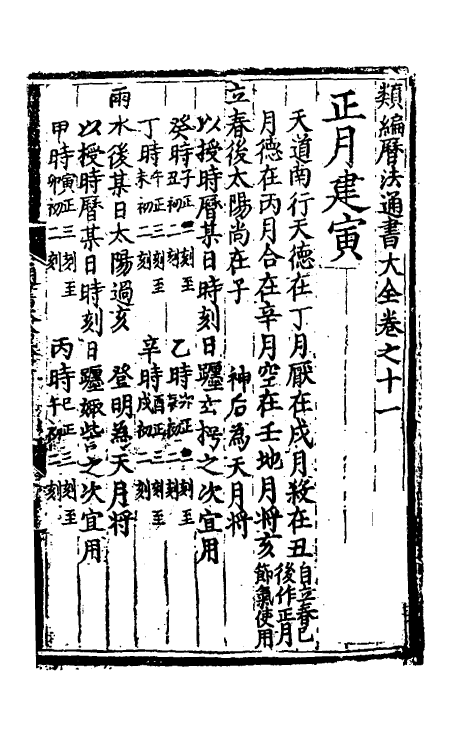 類編曆法通書大全卷之十一
正月建寅
天道南行天德在丁月厭在戌月殺在丑
月德在丙月合在辛月空在壬地月將亥自立春已後作正月節氣使用
立春後太陽尚在子 神后為天月將
以授時曆某日時刻日躔玄枵之次宜用
癸時子正二刻至丑初二刻 乙時卯正二刻至辰初二刻
丁時午正三刻至未初二刻 辛時酉正二刻至戌初二刻
雨水後某日太陽過亥 登明為天月將
以授時曆某日時刻日躔娵訾之次宜用
甲時寅正三刻至卯初二刻 丙時巳正三刻至午初二刻